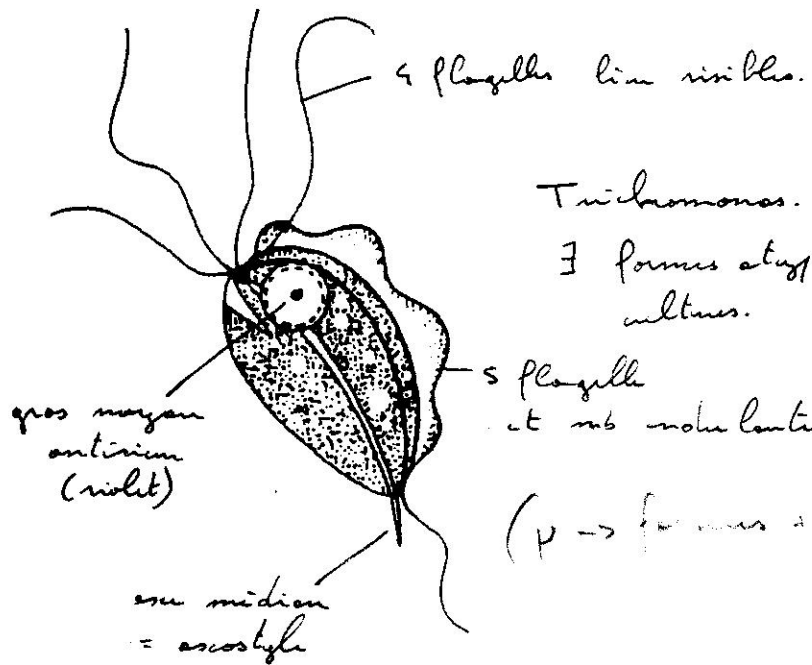 4 flagelles bien visibles.
Trichomonas.
∃ formes atyp
cultures.
5 flagelle
et mb ondulante
gros noyau
antérieur
(violet)
(p -> formes
axe médian
= axostyle